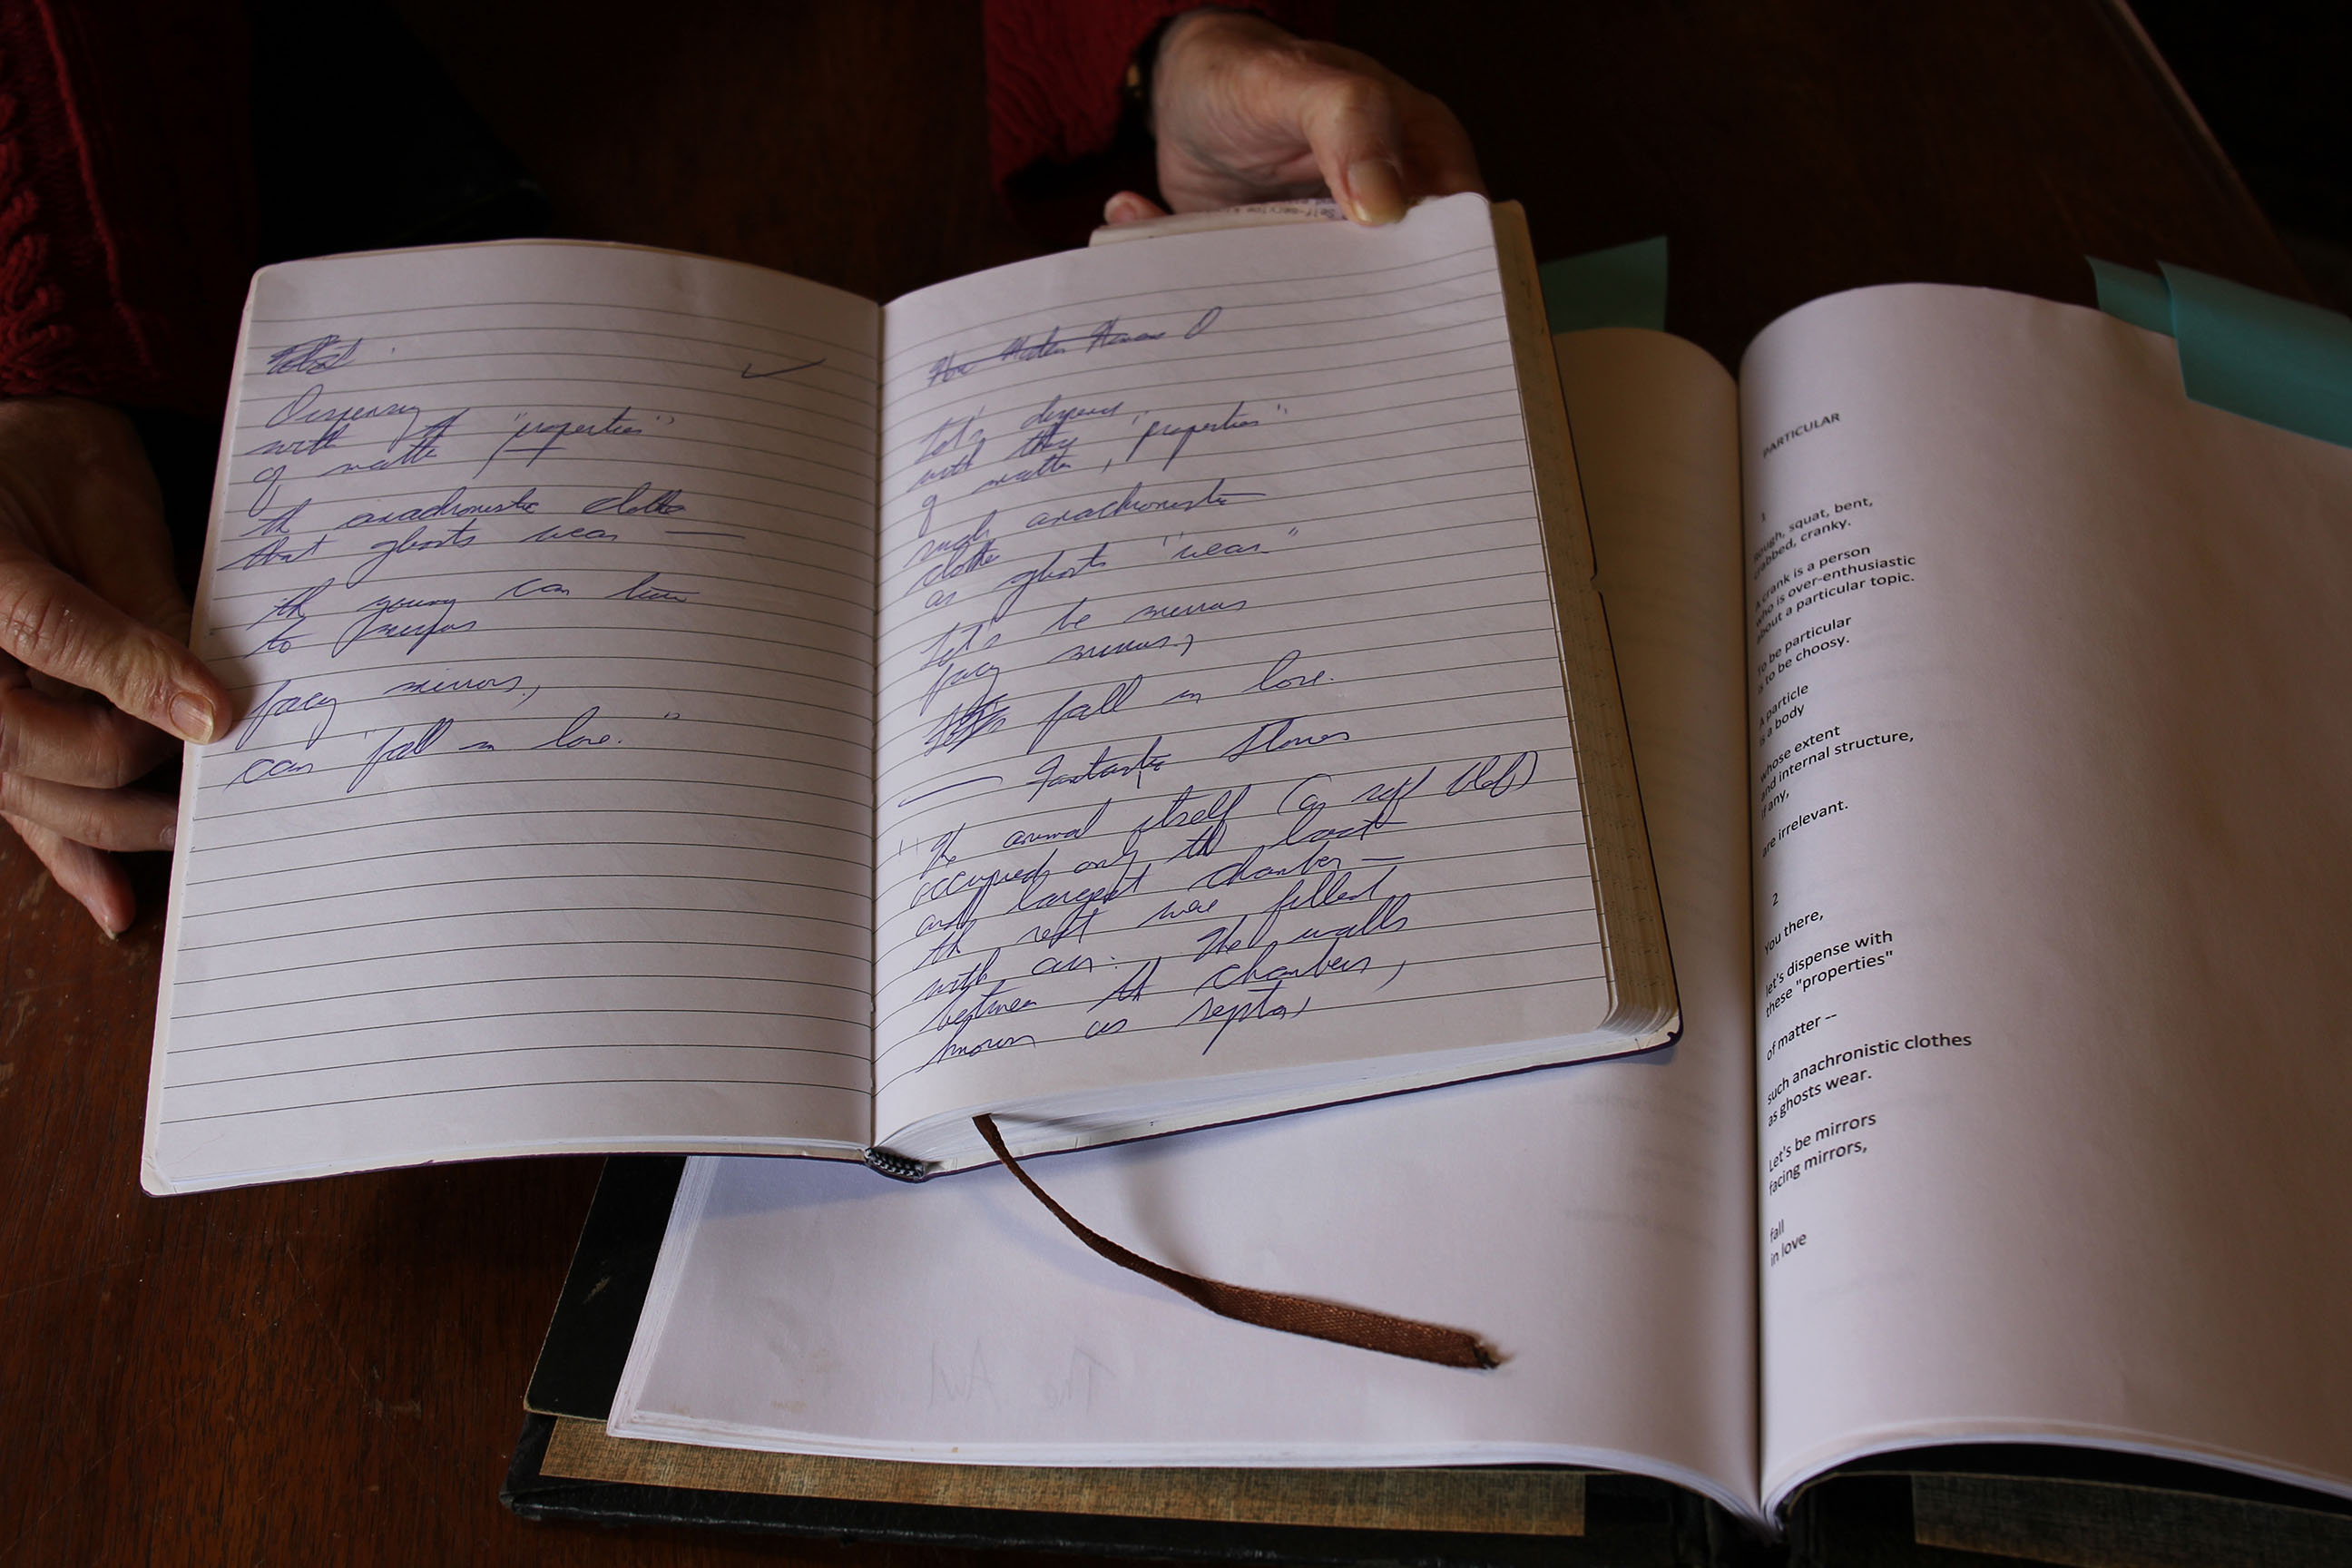 Dispensing
with "properties"
of matter
th anachronistic clothes
that ghosts wear —
th young can
to
facing mirrors,
can "fall in love."
Let's dispense
with these "properties"
of matter,
such anachronistic
clothes
as ghosts "wear"
Let's be mirrors
facing mirrors,
fall in love.
— Fantastic
"The animal itself (
occupied only th last
and largest chamber —
th rest were filled
with air. The walls
between th chambers,
known as septa,
PARTICULAR
1
Rough, squat, bent,
crabbed, cranky.
A crank is a person
who is over-enthusiastic
about a particular topic.
To be particular
is to be choosy.
A particle
is a body
whose extent
and internal structure,
if any,
are irrelevant.
2
You there,
let's dispense with
these "properties"
of matter --
such anachronistic clothes
as ghosts wear.
Let's be mirrors
facing mirrors,
fall
in love